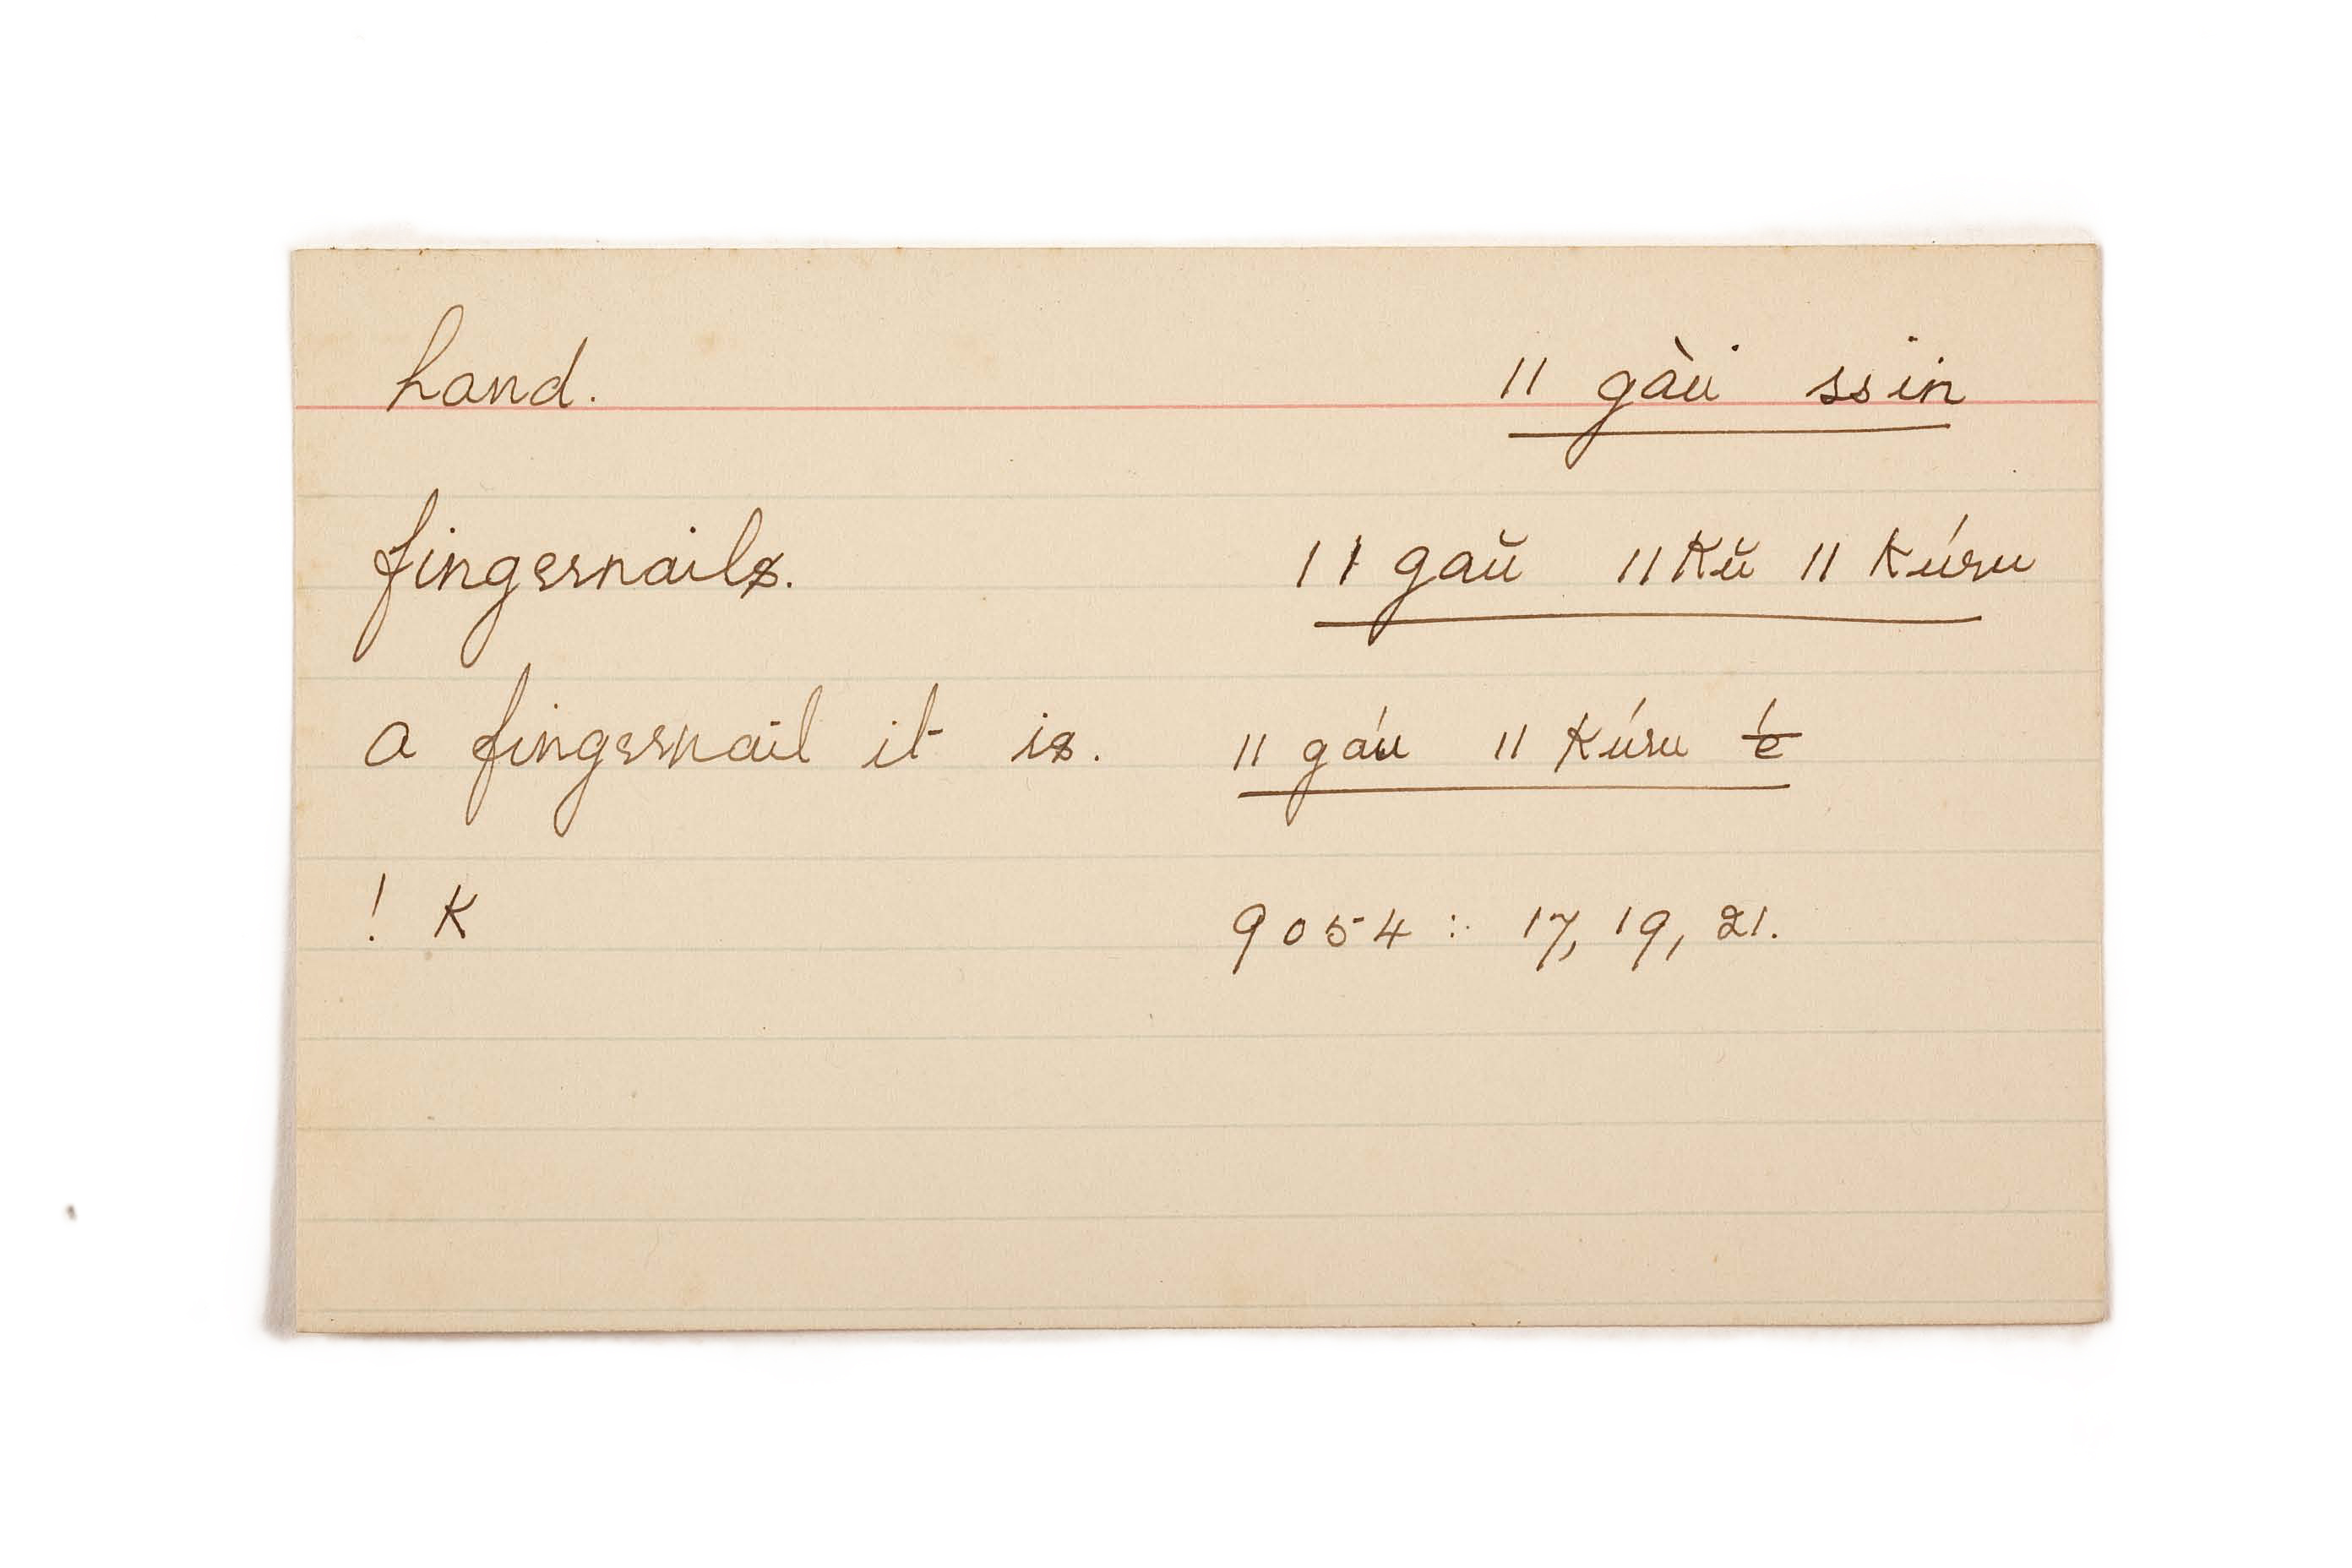 hand. ǁ gàu ssin
fingernails. ǁ gaŭ ǁ kŭ ǁ kúru
a fingernail it is. ǁ gáu ǁ kúru é
! K 9054 : 17, 19, 21.